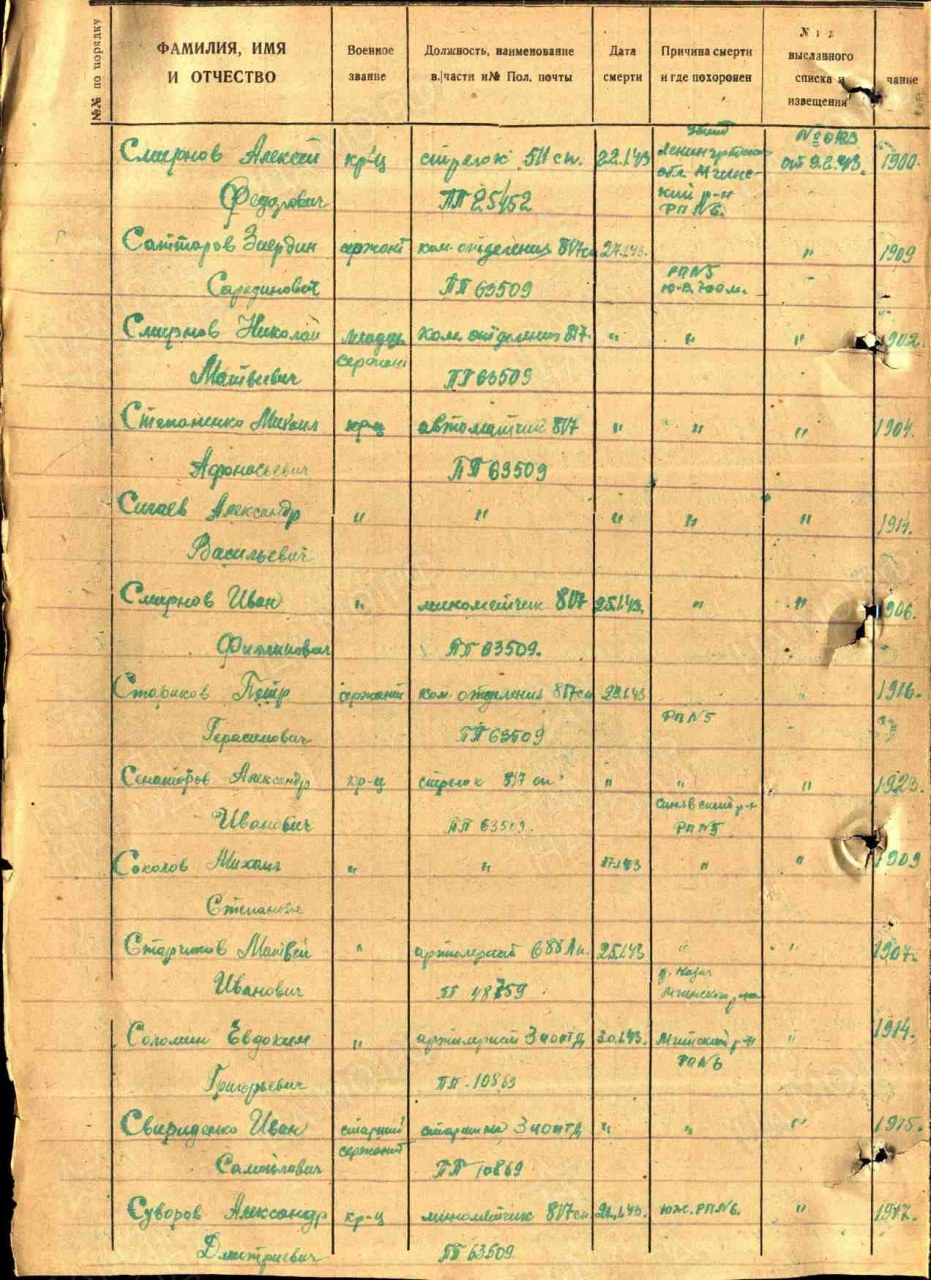 №№ по порядку
ФАМИЛИЯ, ИМЯ И ОТЧЕСТВО
Военное звание
Должность, наименование в/части и № Пол. почты
Дата смерти
Причина смерти и где похоронен
выславного списка и извещения
чание
Смирнов Алексей кр-ц стрелок 511 сп. 22.1.43 убит Ленинградская от 9.2.43. 1900
Федорович ПП 25452 обл. Мгинский р-н РП №6.
Саттаров сержант ком. отделения 807 сп 27.1.43. " 1909
ПП 63509 РП №5 ю-в. 700 м. "
Смирнов Николай младш. сержант ком. отделения 807 " " " 1902.
Матвеевич ПП 63509
Степаненко Михаил кр-ц автоматчик 807 " " " 1904.
Афонасьевич ПП 63509
Сигаев Александр " " " " " 1914.
Васильевич
Смирнов Иван " минометчик 807 25.1.43. " " 1906.
Филиппович ПП 63509.
Стариков Петр сержант ком. отделения 807 сп " 1916.
Герасимович ПП 63509 РП №5 "
Сенаторов Александр кр-ц стрелок 807 сп. " " " 1923.
Иванович ПП 63509. Синявский р-н РП №5
Соколов Михаил " " 17.1.43 " " 1909
Степанович
Старчиков Матвей " артилерист 25.1.43 " " 1907.
Иванович ПП 48759 Мгинского р-на
Соломин Евдоким " артилерист 30.1.43. Мгинский р-н РП №6 " 1914.
Григорьевич ПП 10869
Свириденко Иван старший сержант старшина " " " 1915.
Самойлович ПП 10869
Суворов Александр кр-ц минометчик 807 сп юж. РП №6. "
Дмитриевич ПП 63509